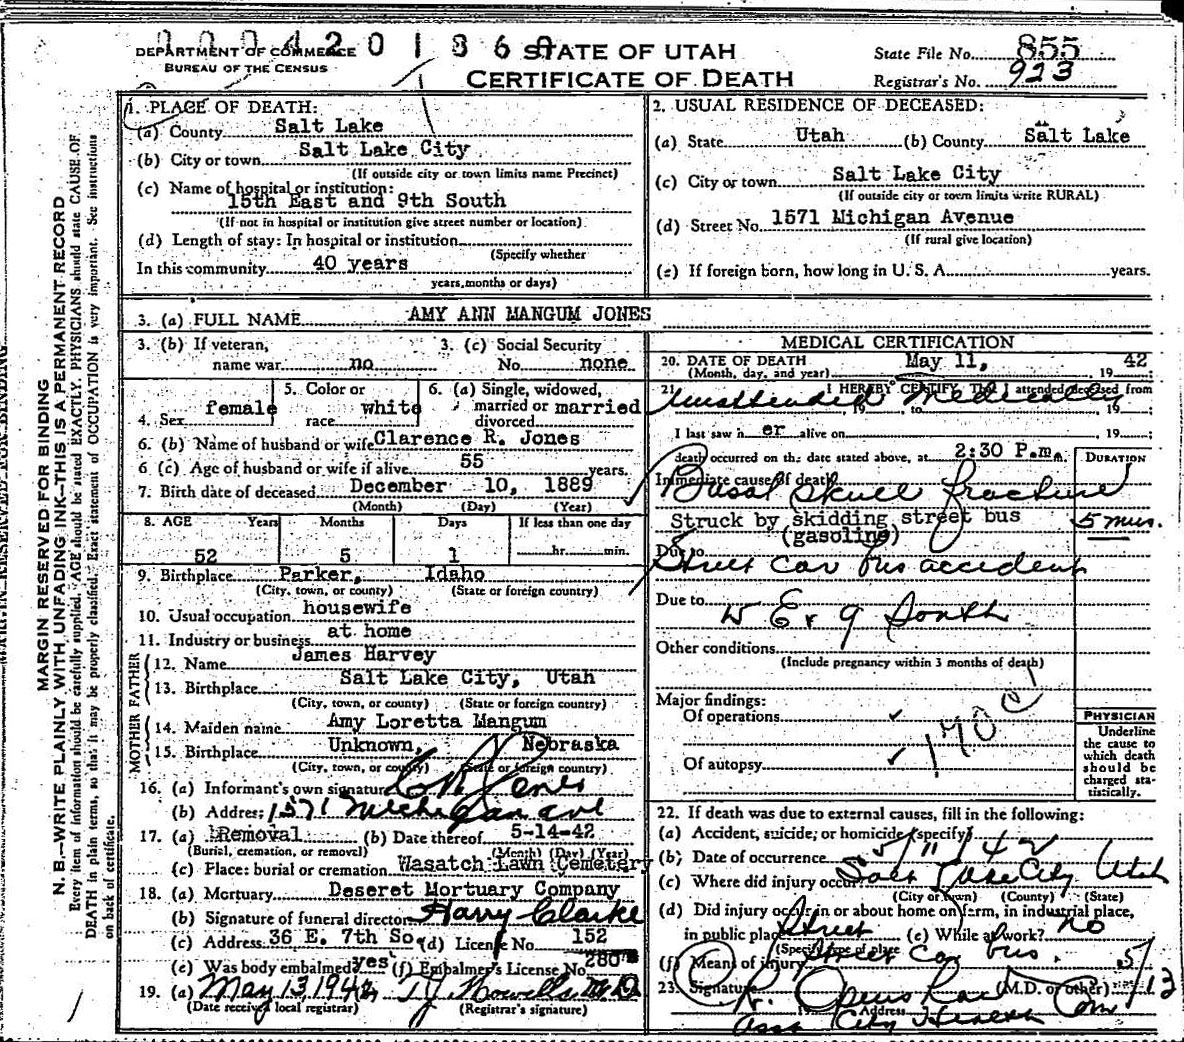 DEPARTMENT OF COMMERCE
BUREAU OF THE CENSUS
STATE OF UTAH
CERTIFICATE OF DEATH
State File No. 855
Registrar's No. 923
MARGIN RESERVED FOR BINDING
N. B.—WRITE PLAINLY WITH UNFADING INK—THIS IS A PERMANENT RECORD
Every item of information should be carefully supplied. AGE should be stated EXACTLY. PHYSICIANS should state CAUSE OF
DEATH in plain terms, so that it may be properly classified. Exact statement of OCCUPATION is very important. See instructions
on back of certificate.
1. PLACE OF DEATH:
(a) County Salt Lake
(b) City or town Salt Lake City
(If outside city or town limits name Precinct)
(c) Name of hospital or institution:
15th East and 9th South
(If not in hospital or institution give street number or location)
(d) Length of stay: In hospital or institution
(Specify whether
In this community 40 years
years, months or days)
2. USUAL RESIDENCE OF DECEASED:
(a) State Utah (b) County Salt Lake
(c) City or town Salt Lake City
(If outside city or town limits write RURAL)
(d) Street No. 1571 Michigan Avenue
(If rural give location)
(e) If foreign born, how long in U. S. A. years.
3. (a) FULL NAME AMY ANN MANGUM JONES
3. (b) If veteran,
name war no
3. (c) Social Security
No. none
4. Sex female
5. Color or
race white
6. (a) Single, widowed,
married or married
divorced
6. (b) Name of husband or wife Clarence R. Jones
6 (c) Age of husband or wife if alive 55 years.
7. Birth date of deceased December 10, 1889
(Month) (Day) (Year)
8. AGE Years Months Days If less than one day
52 5 1 hr. min.
9. Birthplace Parker, Idaho
(City, town, or county) (State or foreign country)
10. Usual occupation housewife
11. Industry or business at home
FATHER
12. Name James Harvey
13. Birthplace Salt Lake City, Utah
(City, town, or county) (State or foreign country)
MOTHER
14. Maiden name Amy Loretta Mangum
15. Birthplace Unknown, Nebraska
(City, town, or county) (State or foreign country)
16. (a) Informant's own signature C R Jones
(b) Address 1571 Michigan ave
17. (a) Removal (b) Date thereof 5-14-42
(Burial, cremation, or removal) (Month) (Day) (Year)
(c) Place: burial or cremation Wasatch Lawn Cemetery
18. (a) Mortuary Deseret Mortuary Company
(b) Signature of funeral director Harry Clarke
(c) Address 36 E. 7th So. (d) License No. 152
(e) Was body embalmed? yes (f) Embalmer's License No. 280
19. (a) May 13, 1942 T J Howells M D
(Date received local registrar) (Registrar's signature)
MEDICAL CERTIFICATION
20. DATE OF DEATH May 11, 19 42
(Month, day, and year)
21. I HEREBY CERTIFY, That I attended deceased from
Unattended Medically
19 to 19 ;
I last saw h er alive on 19 ;
death occurred on the date stated above, at 2:30 P.m.
DURATION
Immediate cause of death
Basal Skull fracture
Struck by skidding street bus 5 mns.
(gasoline)
Due to
Street Car bus accident
Due to
E & 9 South
Other conditions
(Include pregnancy within 3 months of death)
Major findings:
Of operations
Of autopsy
170 C
PHYSICIAN
Underline
the cause to
which death
should be
charged sta-
tistically.
22. If death was due to external causes, fill in the following:
(a) Accident, suicide, or homicide (specify)
(b) Date of occurrence 5/11/42
(c) Where did injury occur? Salt Lake City Utah
(City or town) (County) (State)
(d) Did injury occur in or about home on farm, in industrial place,
in public place Street (e) While at work? no
(Specify type of place)
(f) Means of injury Street Car bus.
23. Signature (M.D. or other)
5/13
Address
Asst City Health Com